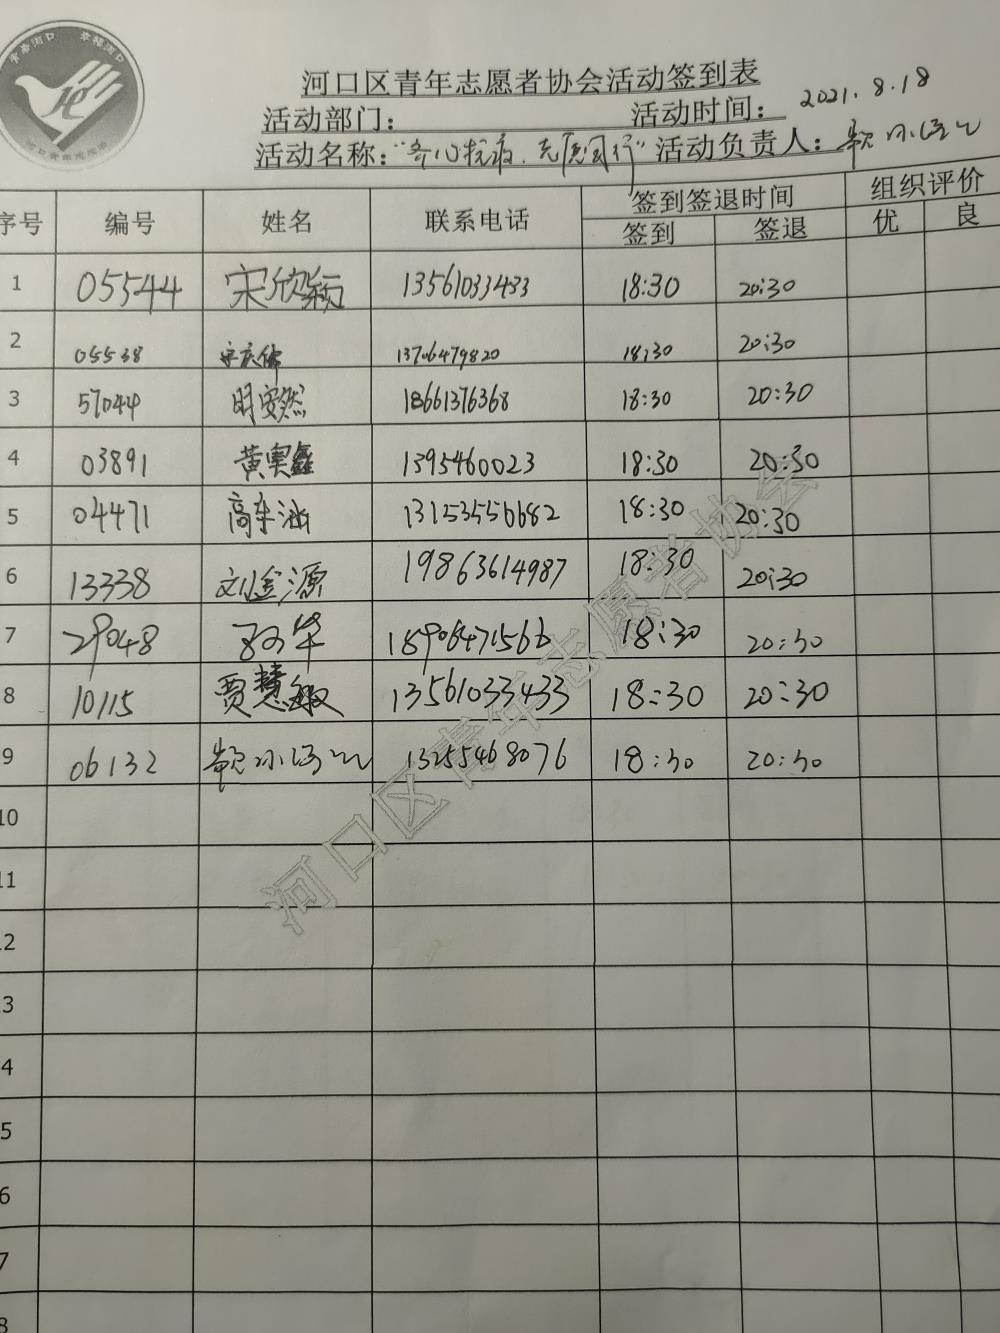 河口区青年志愿者协会活动签到表
活动部门: 活动时间: 2021.8.18
活动名称:"齐心抗疫.志愿同行" 活动负责人:
序号 编号 姓名 联系电话 签到签退时间 组织评价
签到 签退 优 良
1 05544 宋欣颖 13561033433 18:30 20:30
2 05538 13706479820 18:30 20:30
3 57044 明安然 18661376368 18:30 20:30
4 03891 黄奕鑫 1395460023 18:30 20:30
5 04471 高车涵 13153556682 18:30 20:30
6 13338 刘金源 19863614987 18:30 20:30
7 29048 孙华 18906471566 18:30 20:30
8 10115 贾慧敏 13561033433 18:30 20:30
9 06132 13255468076 18:30 20:30
10
11
12
13
4
5
6
7
8
河口区青年志愿者协会